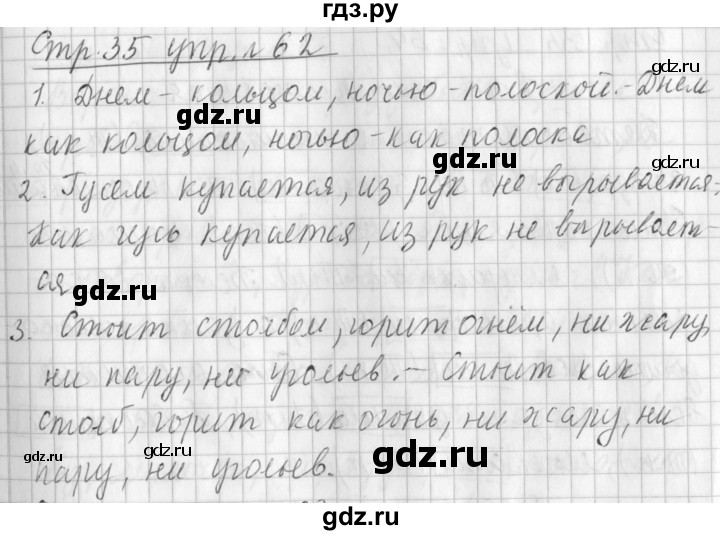 гдз.ру
Стр. 35 упр. № 62
1. Днем - кольцом, ночью - полоской. - Днем
gdz.ru
как кольцом, ночью - как полоска
gdz.ru
2. Гусем купается, из рук не вырывается.
Как гусь купается, из рук не вырывает-
ся
gdz.ru
3. Стоит столбом, горит огнём, ни жару,
ни пару, ни угольев. - Стоит как
столб, горит как огонь, ни жару, ни
gdz.ru
gdz.ru
пару, ни угольев.
gdz.ru